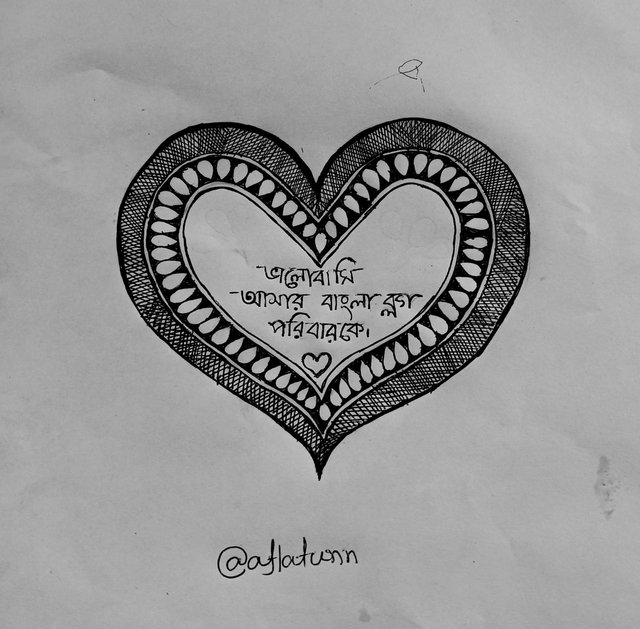 ভালোবাসি
আমার বাংলা ব্লগ
পরিবারকে।
@aflatunn